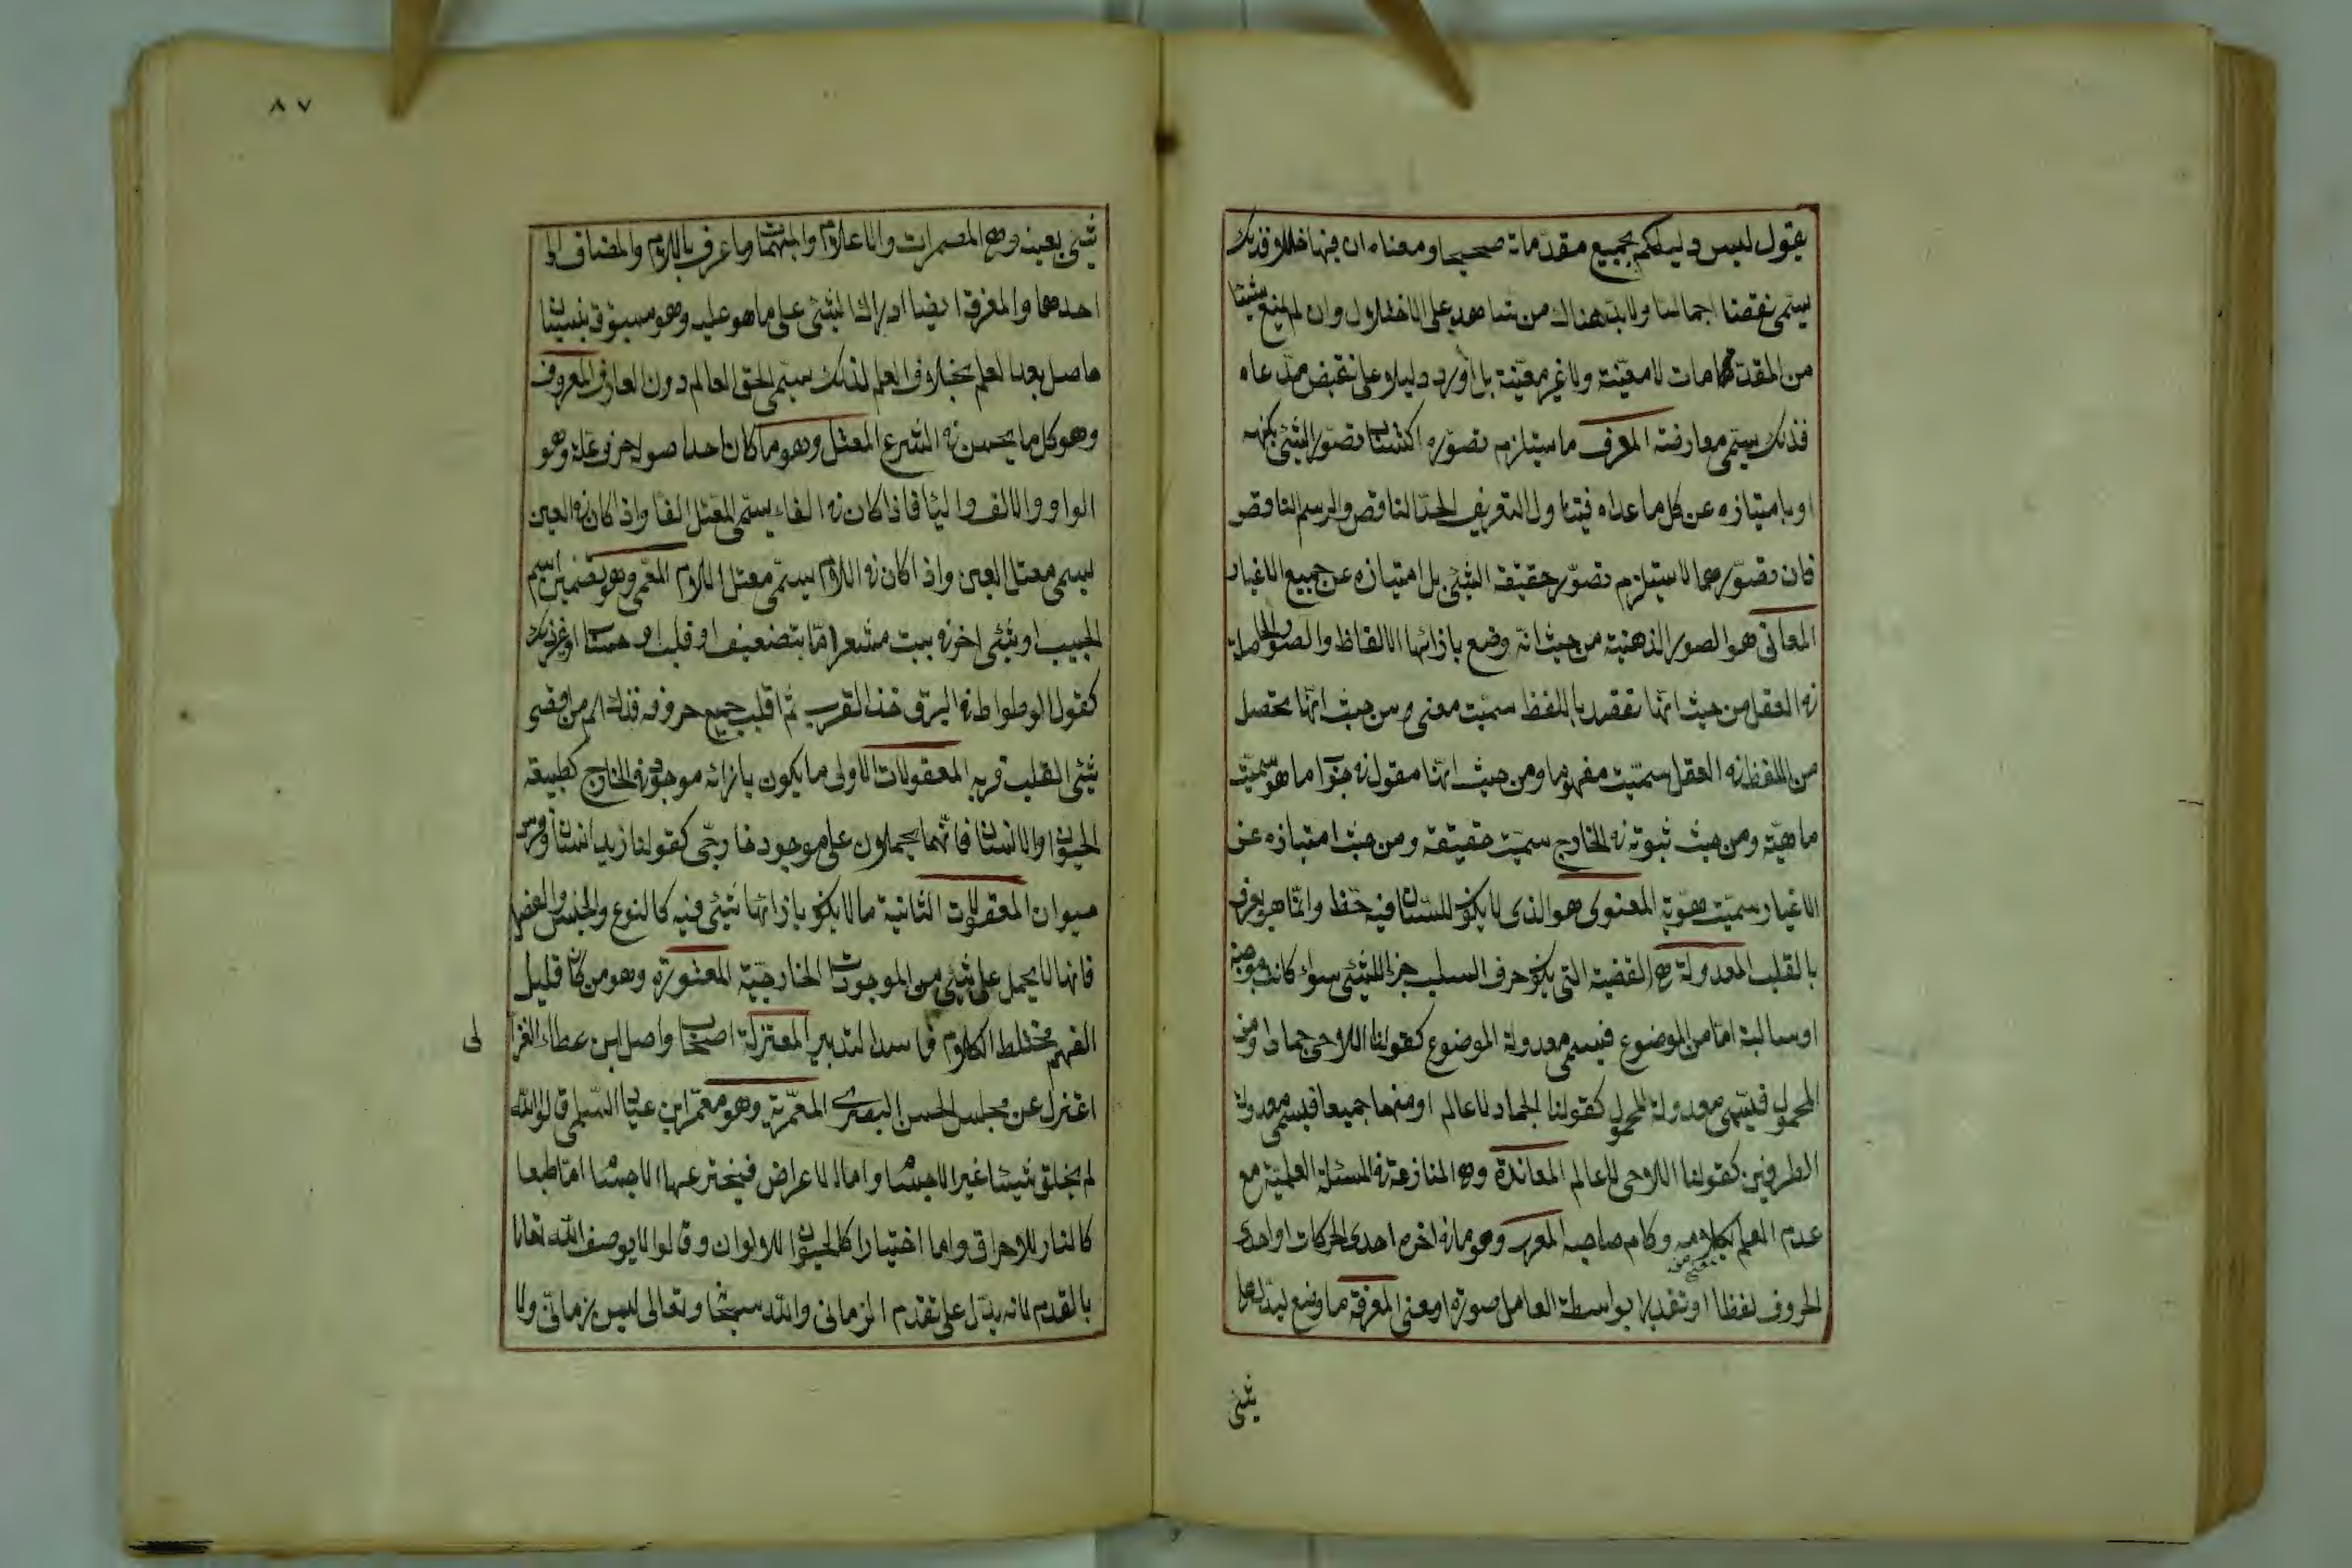 يقول ليس دليلكم بجميع مقدماته صحيحا ومعناه ان فيها خللا وذلك
يسمى نقضا اجماليا ولا بد هناك من شاهد على الاختلال وان لم يمنع شيئا
من المقدمات لا معينة ولا غير معينة بل اورد دليلا على نقيض مدعاه
فذلك يسمى معارضة المعرف ما يستلزم تصوره اكتساب تصور الشئ بكنهه
او بامتيازه عن كل ما عداه فيتناول التعريف الحد الناقص والرسم الناقص
فان تصورهما لا يستلزم تصور حقيقة الشئ بل امتيازه عن جميع الاغيار
المعانى هو الصور الذهنية من حيث انه وضع بازائها الالفاظ والصور الحاصلة
فى العقل من حيث انها تقصد باللفظ سميت معنى ومن حيث انها تحصل
من اللفظ فى العقل سميت مفهوما ومن حيث انها مقول فى جواب ما هو سميت
ماهية ومن حيث ثبوته فى الخارج سميت حقيقة ومن حيث امتيازه عن
الاغيار سميت هوية المعنوى هو الذى لا يكون للسان فيه حظ وانما هو يعرف
بالقلب المعدولة هى القضية التى يكون حرف السلب جزء للشئ سواء كانت موجبة
او سالبة اما من الموضوع فيسمى معدولة الموضوع كقولنا اللاحى جماد او من
المحمول فيسمى معدولة المحمول كقولنا الجماد لا عالم او منهما جميعا فيسمى معدولة
الطرفين كقولنا اللاحى لا عالم المعاندة وهى المنازعة فى المسئلة العلمية مع
عدم العلم بكلامه وكلام صاحبه المعرب وهو ما فى اخره احدى الحركات او احدى
الحروف لفظا او تقديرا بواسطة العامل صورة او معنى المعرفة ما وضع ليدل على
شئ
٨٧
شئ بعينه وهى المضمرات والاعلام والمبهمات وما عرف باللام والمضاف الى
احدهما والمعرفة ايضا ادراك الشئ على ما هو عليه وهو مسبوق بنسيان
حاصل بعد العلم بخلاف العلم لذلك يسمى الحق العالم دون العارف المعروف
وهو كل ما يحسن فى الشرع المعتل وهو ما كان احد اصوله حرف علة وهو
الواو والالف واليا فاذا كان فى الفاء يسمى المعتل الفا واذا كان فى العين
يسمى معتل العين واذا كان فى اللام يسمى معتل اللام المعمى وهو تضمين اسم
الحبيب او شئ اخر فى بيت شعر اما بتصحيف او قلب او حساب او غير ذلك
كقول الوطواط فى البرق خذ القرب ثم اقلب جميع حروفه فذلك اسم من اقصى
شئ القلب قربه المعقولات الاولى ما يكون بازائه موجود فى الخارج كطبيعة
الحيوان والانسان فانهما يحملان على موجود خارجى كقولنا زيد انسان وفرس
حيوان المعقولات الثانية ما لا يكون بازائها شئ فيه كالنوع والجنس والفصل
فانها لا يحمل على شئ من الموجودات الخارجية المعتوه وهو من كان قليل
الفهم مختلط الكلام فاسد التدبير المعتزلة اصحاب واصل ابن عطاء الغزا
لى
اعتزل عن مجلس الحسن البصرى المعمرية وهو معمر ابن عباد السلمى قالوا الله
لم يخلق شيئا غير الاجسام واما الاعراض فيخترعها الاجسام اما طبعا
كالنار للاحراق واما اختيارا كالحيوان للالوان وقالوا لا يوصف الله تعالى
بالقدم لانه يدل على تقدم الزمانى والله سبحانه وتعالى ليس بزمانى ولا